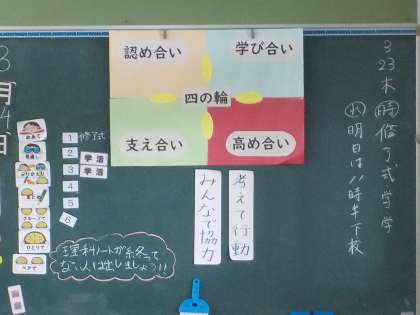 認め合い
学び合い
四の輪
支え合い
高め合い
考えて行動
みんなで協力
3
23
木
時
修了式
学
学
明日は11時半下校
3
月
日
1 修了式
2 学活
3 学活
4
5
6
理科ノートが終って
ない人は出しましょう!!
ひとりで
ペアで